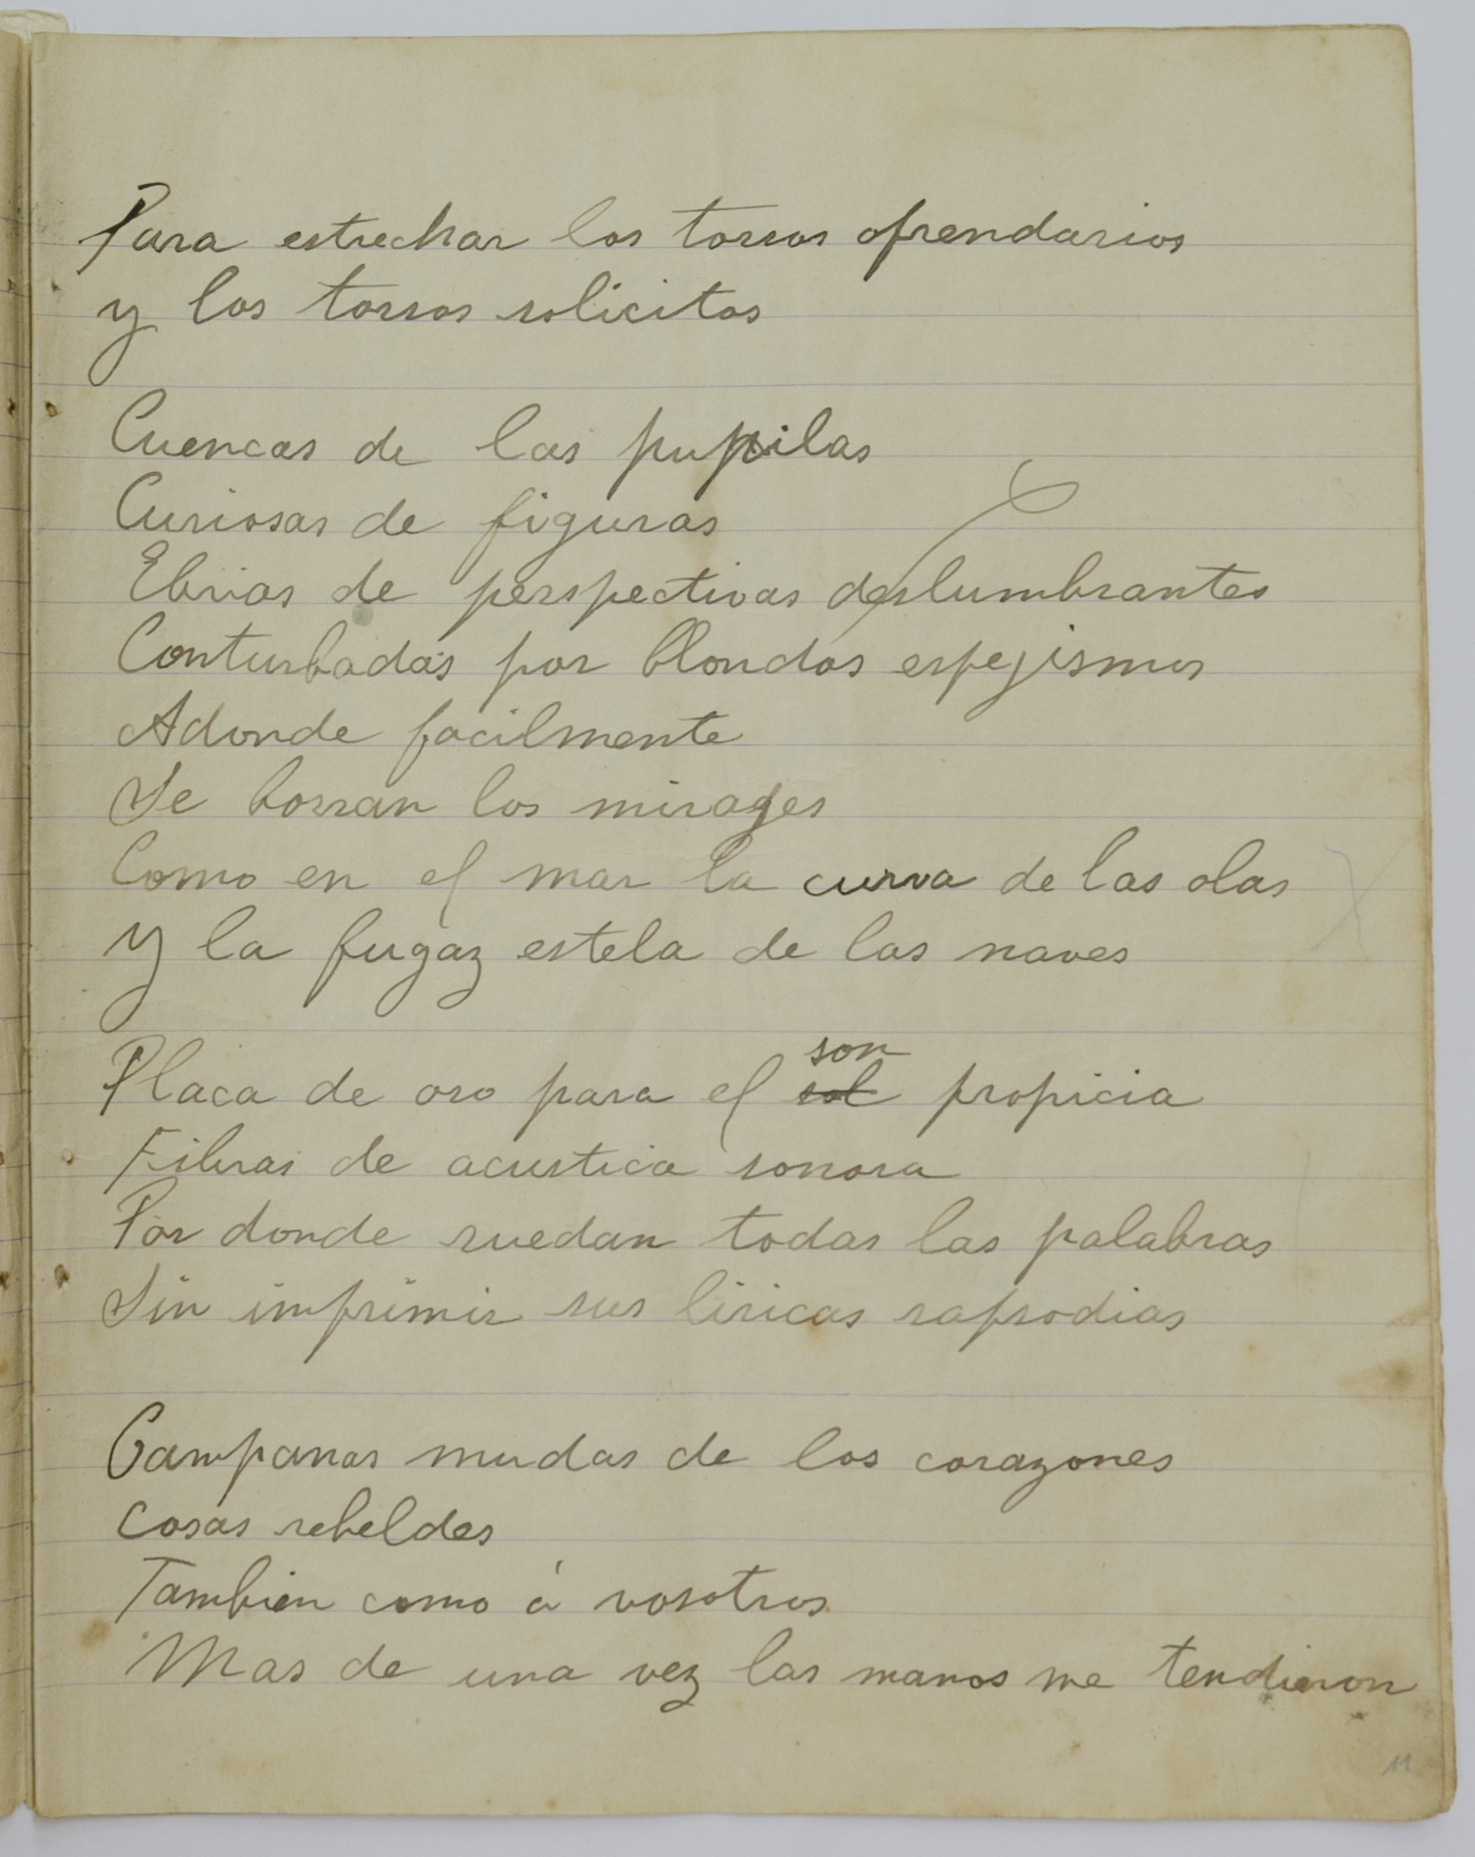 Para estrechar los torsos ofrendarios
y los torsos solicitos
Cuencas de las pupilas
Curiosas de figuras
Ebrias de perspectivas deslumbrantes
Conturbadas por blondos espejismos
Adonde facilmente
Se borran los mirages
Como en el mar la curva de las olas
y la fugaz estela de las naves
son
Placa de oro para el sol propicia
Fibras de acustica sonora
Por donde ruedan todas las palabras
Sin imprimir sus liricas rapsodias
Campanas mudas de los corazones
Cosas rebeldes
Tambien como á vosotros
Mas de una vez las manos me tendieron
11